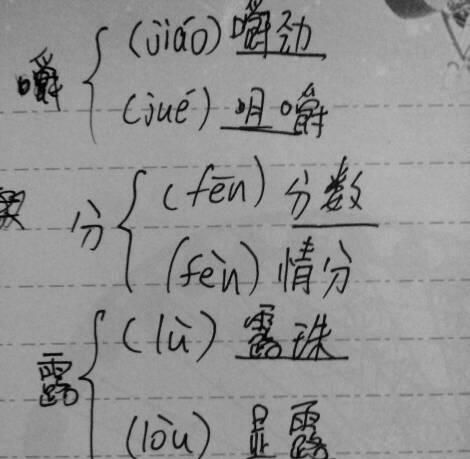 嚼 (jiáo) 嚼劲
(jué) 咀嚼
分 (fēn) 分数
(fèn) 情分
露 (lù) 露珠
(lòu) 显露